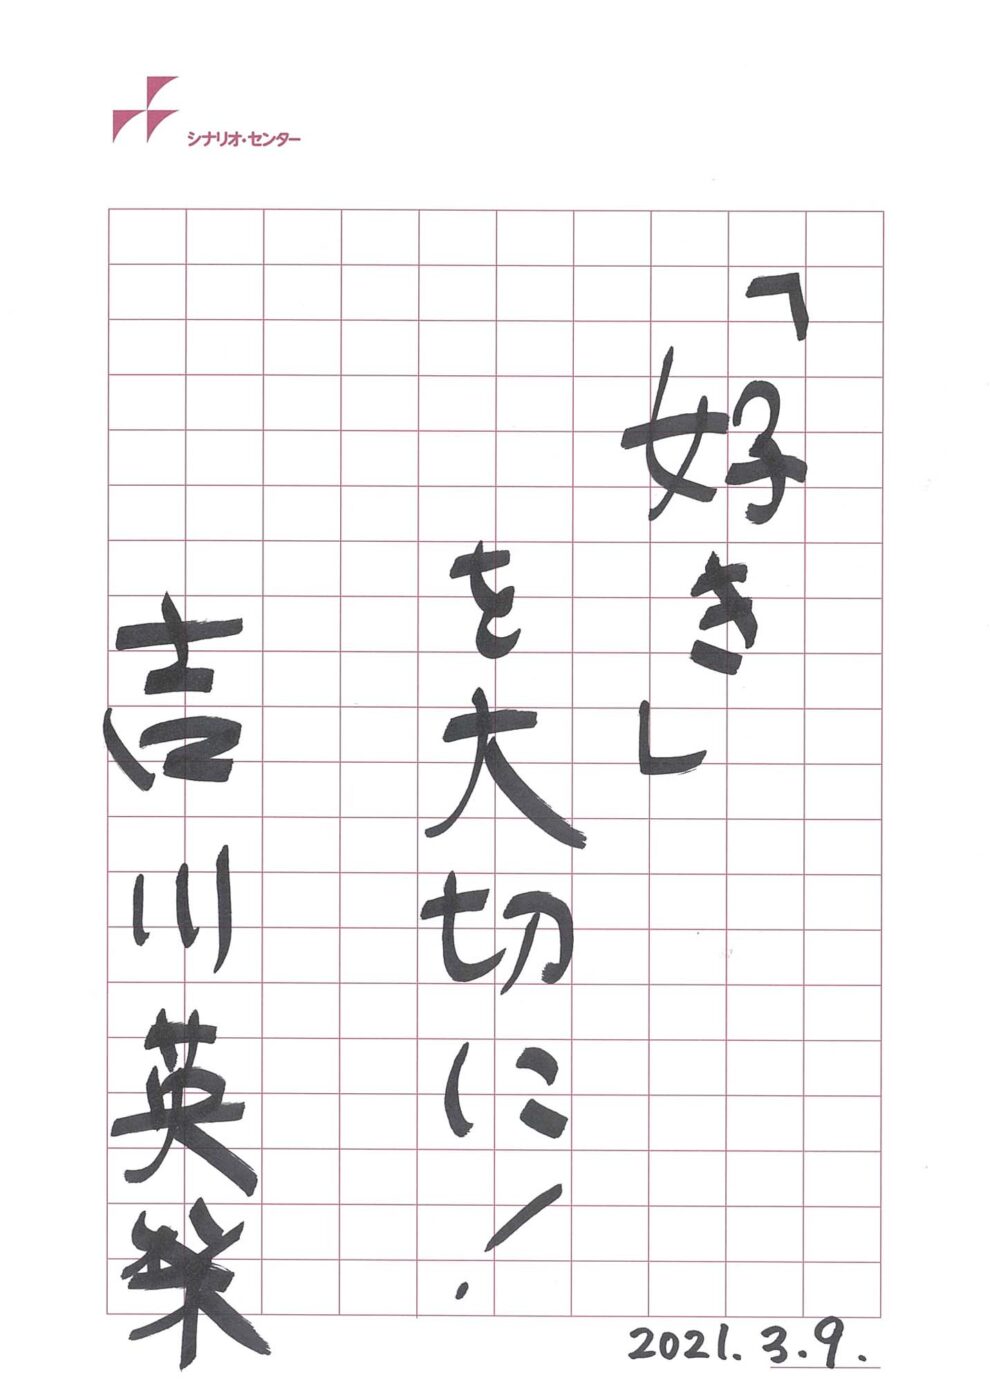 シナリオ・センター
「好き」
を大切に!
吉川英梨
2021.3.9.